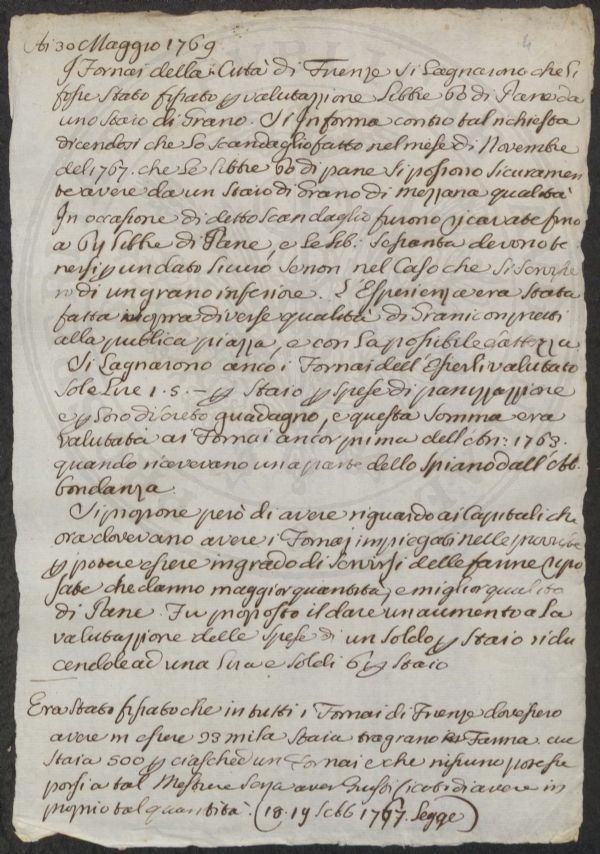 Ai 30 Maggio 1769
I Fornai della Città di Firenze si lagnarono che li
fosse stato fissato p valutazione libbre 60 di Pane da
uno staio di Grano. Si informa contro tal richiesta
dicendosi che lo scandaglio fatto nel mese di Novembre
del 1767. che le libbre 60 di pane si possono sicuramen
te avere da un staio di Grano di mezzana qualità
In occasione di detto scandaglio furono ricavate fino
a 64 libbre di Pane, e le lib. sessanta devono te
nersi p un dato sicuro se non nel caso che si servisse
ro di un grano inferiore. L'Esperienza era stata
fatta sopra diverse qualità di Grani comprati
alla publica piazza, e con la possibile esattezza
Si lagnarono anco i Fornai dell'Esserli valutato
sole Lire 1. 5. – p staio p spese di panizzazione
e p loro discreto guadagno, e questa somma era
valutata ai Fornai ancor prima dell' 1763.
quando ricevevano una parte dello spiano dall'Ab
bondanza.
Si propone però di avere riguardo ai Capitali che
ora dovevano avere i Fornai impiegati nelle
p potere essere in grado di servirsi delle farine ripo
sate che danno maggior quantità, e miglior qualità
di Pane. Fu proposto il dare un aumento a la
valutazione delle spese di un soldo p staio ridu
cendole ad una Lira e soldi 6 p staio
Era stato fissato che in tutti i Fornai di Firenze dovessero
avere in essere 33 mila staia tra grano Farina cioè
staia 500 p ciasched un Fornai e che nissuno potesse
porsi a tal Mestiere senza aver di avere in
proprio tal quantità. (18. 19 Setb 1767. Legge)